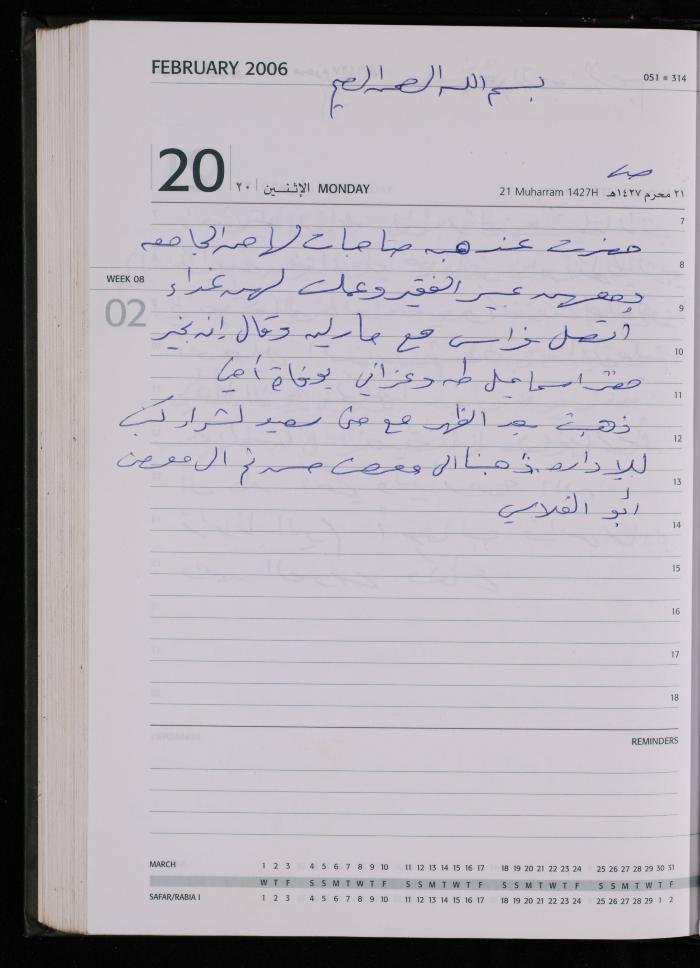 FEBRUARY 2006
051 = 314
بسم الله الرحمن الرحيم
20 ٢٠ الإثنين MONDAY
21 Muharram 1427H ٢١ محرم ١٤٢٧هـ
7
حضرت عند هبه صاحبات لها من الجامعه
8
WEEK 08
عبير الفقير وعملت لهن غداء
9
02
أتصل فراس مع مارليه وقال إنه بخير
10
حضر اسماعيل طه وعزاني بوفاة أخي
11
ذهبت بعد الظهر مع سعيد لشراء كنب
12
للإداره ذهبنا الى معرض ثم الى معرض
13
أبو الفلاسي
14
15
16
17
18
REMINDERS
MARCH 1 2 3 4 5 6 7 8 9 10 11 12 13 14 15 16 17 18 19 20 21 22 23 24 25 26 27 28 29 30 31
W T F S S M T W T F S S M T W T F S S M T W T F S S M T W T F
SAFAR/RABIA I 1 2 3 4 5 6 7 8 9 10 11 12 13 14 15 16 17 18 19 20 21 22 23 24 25 26 27 28 29 1 2